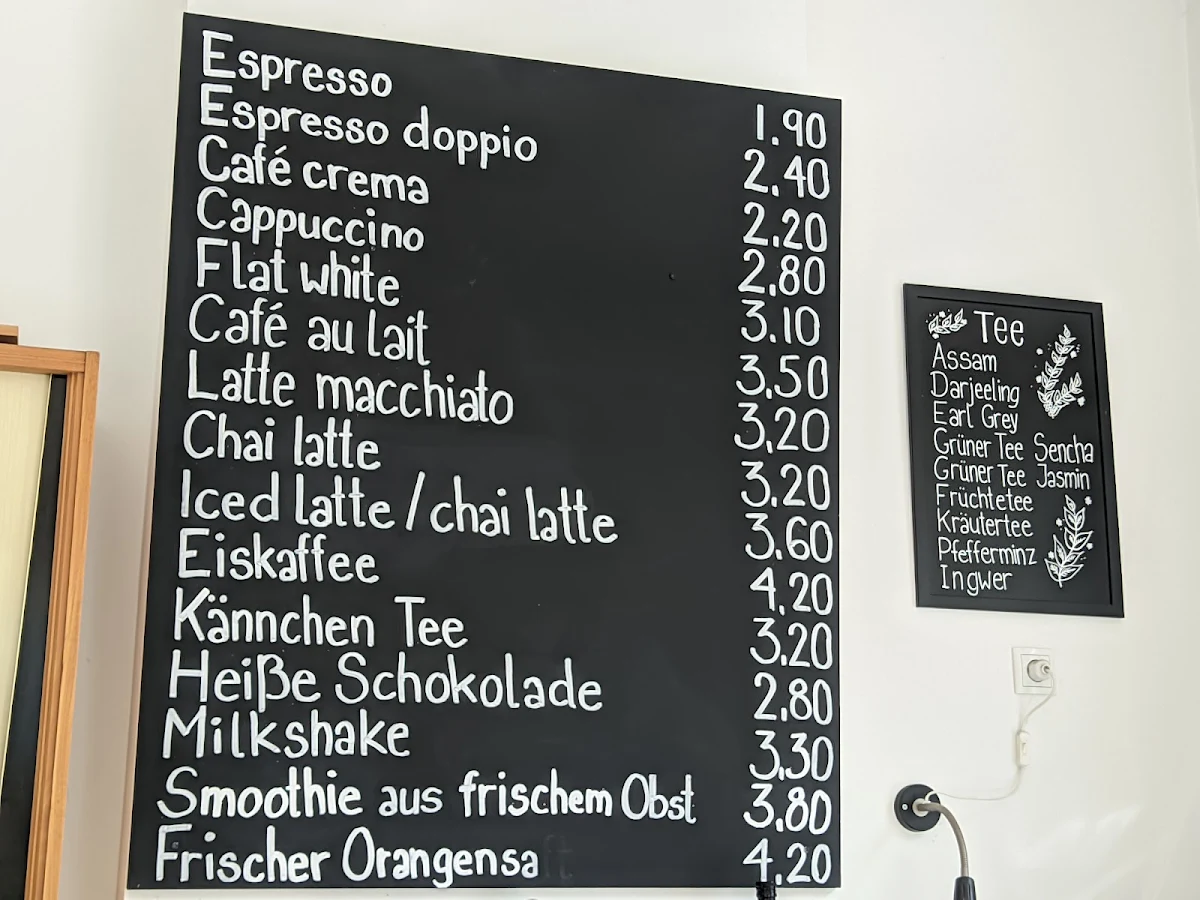 Espresso 1.90
Espresso doppio 2.40
Café crema 2.20
Cappuccino 2.80
Flat white 3.10
Café au lait 3.50
Latte macchiato 3.20
Chai latte 3.20
Iced latte / chai latte 3.60
Eiskaffee 4.20
Kännchen Tee 3.20
Heiße Schokolade 2.80
Milkshake 3.30
Smoothie aus frischem Obst 3.80
Frischer Orangensaft 4.20
Tee
Assam
Darjeeling
Earl Grey
Grüner Tee Sencha
Grüner Tee Jasmin
Früchtetee
Kräutertee
Pfefferminz
Ingwer